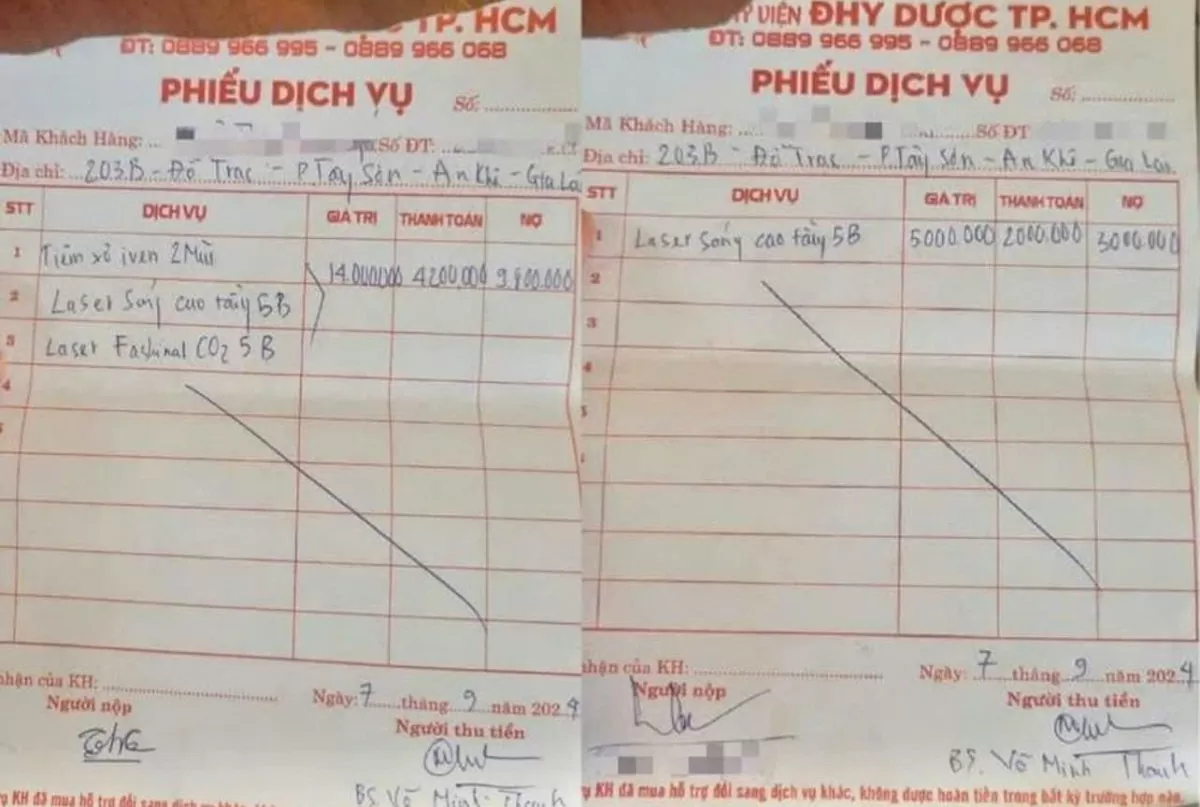 TP. HCM
ĐT: 0889 966 995 - 0889 966 068
PHIẾU DỊCH VỤ
Số:
Mã Khách Hàng: Số ĐT:
Địa chỉ: 203B - Đô Trac - P. Tây Sơn - An Khê - Gia Lai
STT DỊCH VỤ GIÁ TRỊ THANH TOÁN NỢ
1 Tiêm xơ 2 Mũi
14.000.000 4200.000 9.800.000
2 Laser Sóng cao tầng 5B
3 Laser CO2 5B
4
nhận của KH:
Ngày: 7 tháng 9 năm 2024
Người nộp
Người thu tiền
BS. Võ Minh Thanh
KH đã mua hỗ trợ đổi sang dịch vụ khác
VIỆN ĐHY DƯỢC TP. HCM
ĐT: 0889 966 995 - 0889 966 068
PHIẾU DỊCH VỤ
Số:
Mã Khách Hàng: Số ĐT
Địa chỉ: 203.B - Đô Trac - P. Tây Sơn - An Khê - Gia Lai
STT DỊCH VỤ GIÁ TRỊ THANH TOÁN NỢ
1 Laser Sóng cao tầng 5B 5000.000 2000.000 3000.000
2
3
4
5
nhận của KH:
Ngày: 7 tháng 9 năm 2024
Người nộp
Người thu tiền
BS. Võ Minh Thanh
KH đã mua hỗ trợ đổi sang dịch vụ khác, không được hoàn tiền trong bất kỳ trường hợp nào